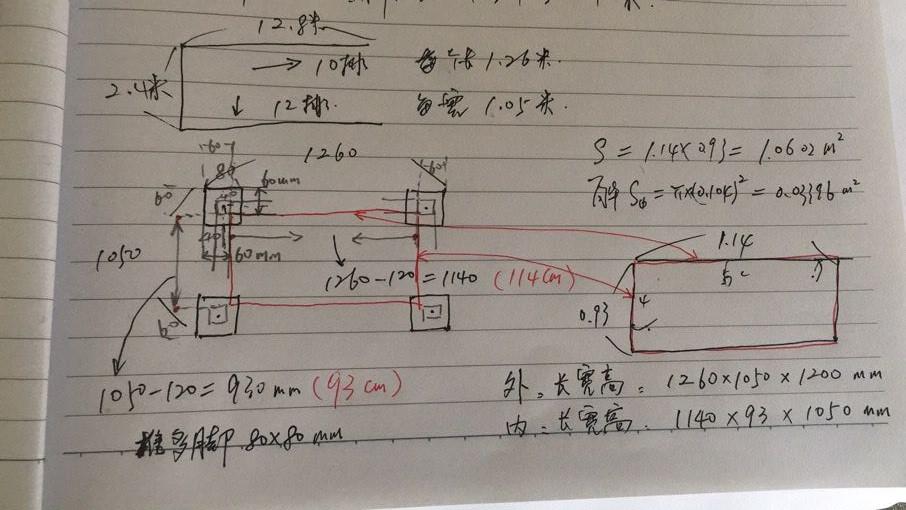 12.8米
→ 10排 每个长 1.26米.
2.4米
↓ 12排. 每宽 1.05米.
1260
S = 1.14×0.93 = 1.0602 m²
= π×(0.104)² = 0.03396 m²
60
80
60mm
60
1050
60mm
1260-120=1140 (114cm)
1.14
0.93
60
1050-120=930mm (93cm)
外:长宽高: 1260×1050×1200 mm
内:长宽高: 1140×93×1050 mm
脚 80×80 mm